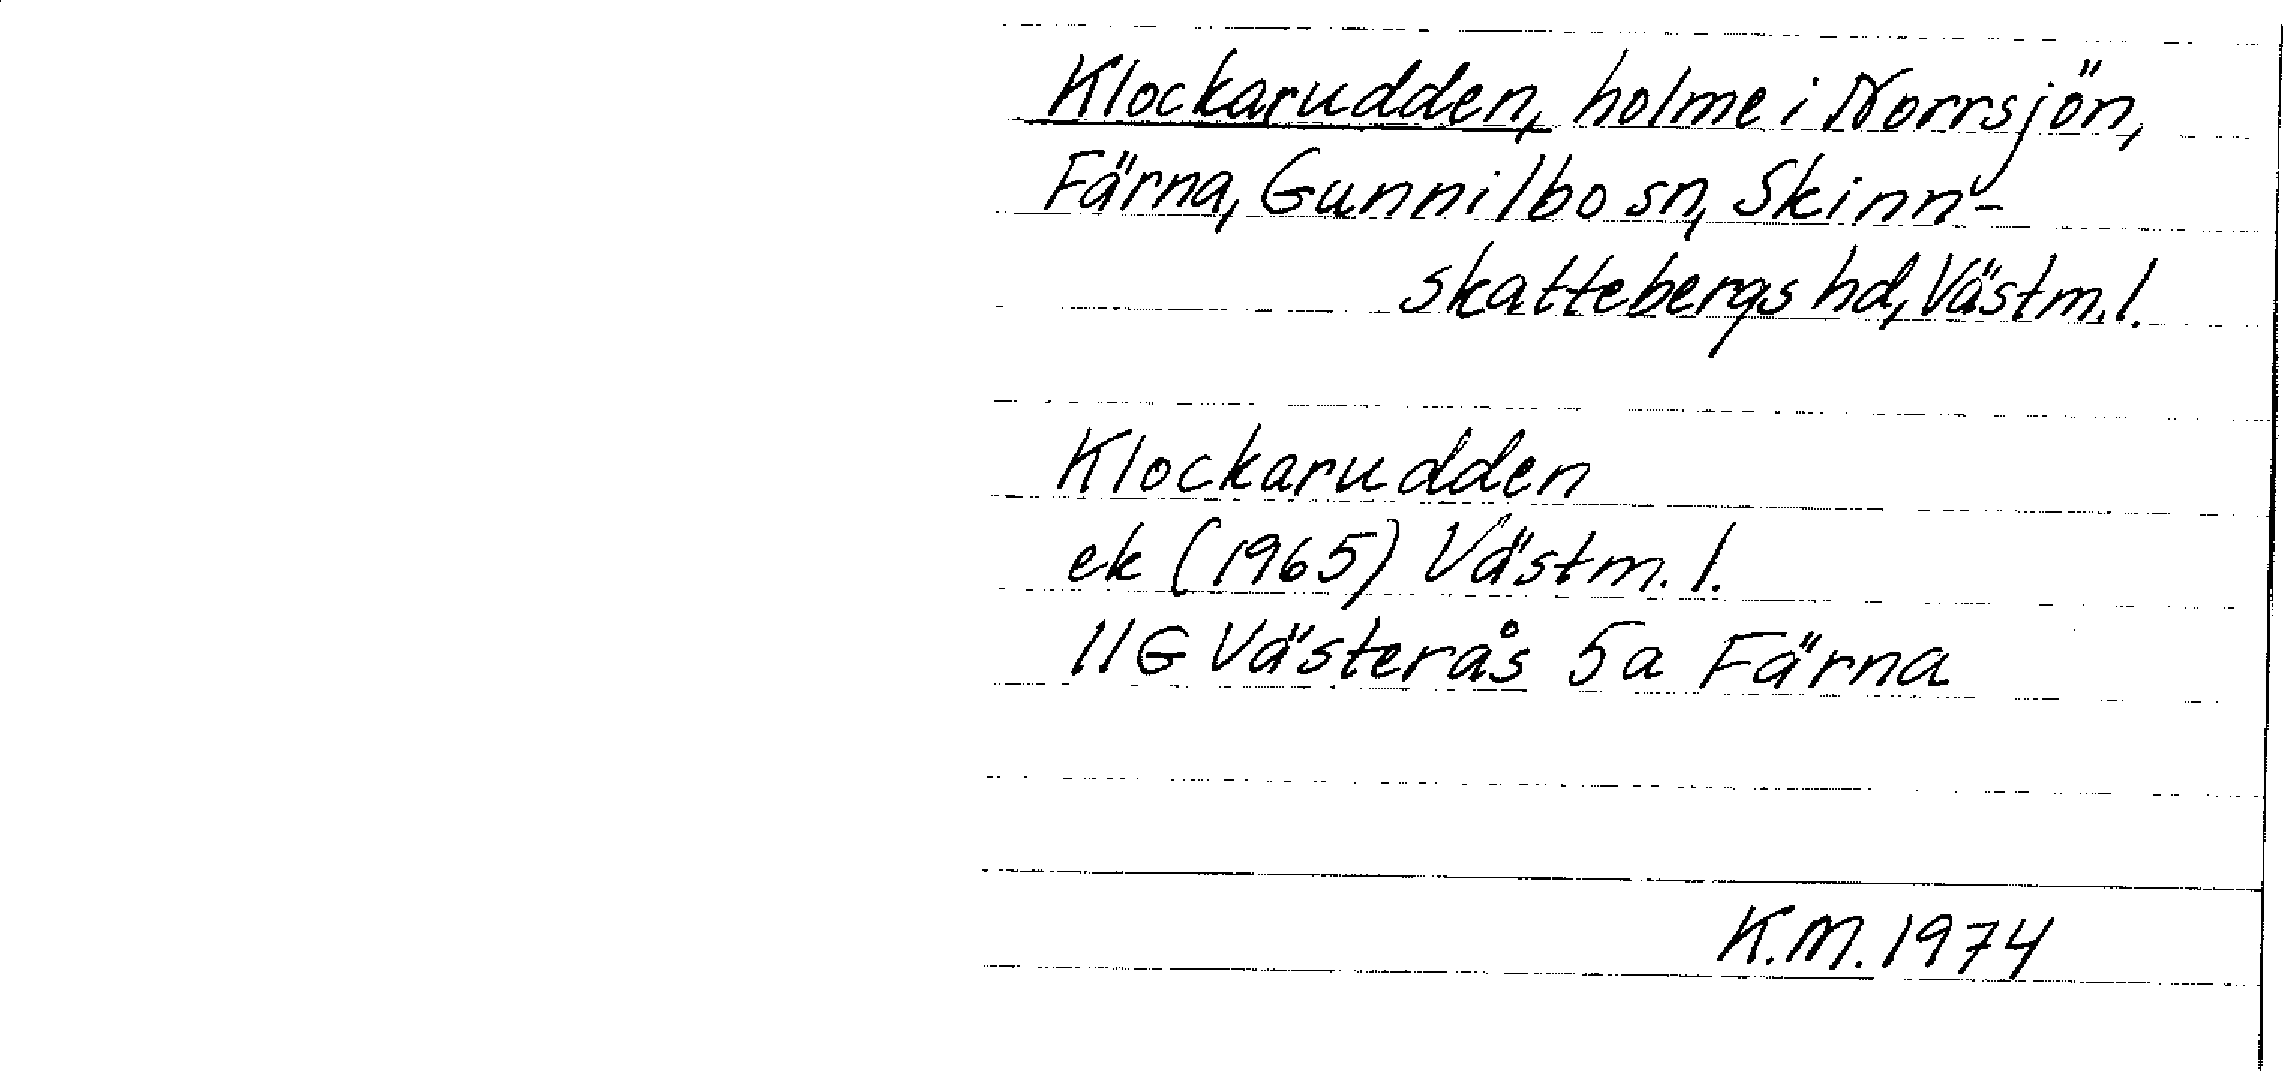 Klockarudden, holme i Norrsjön,
Färna, Gunnilbo sn, Skinn-
skattebergs hd, Västm. l.
Klockarudden
ek (1965) Västm. l.
11G Västerås 5a Färna
K.M. 1974